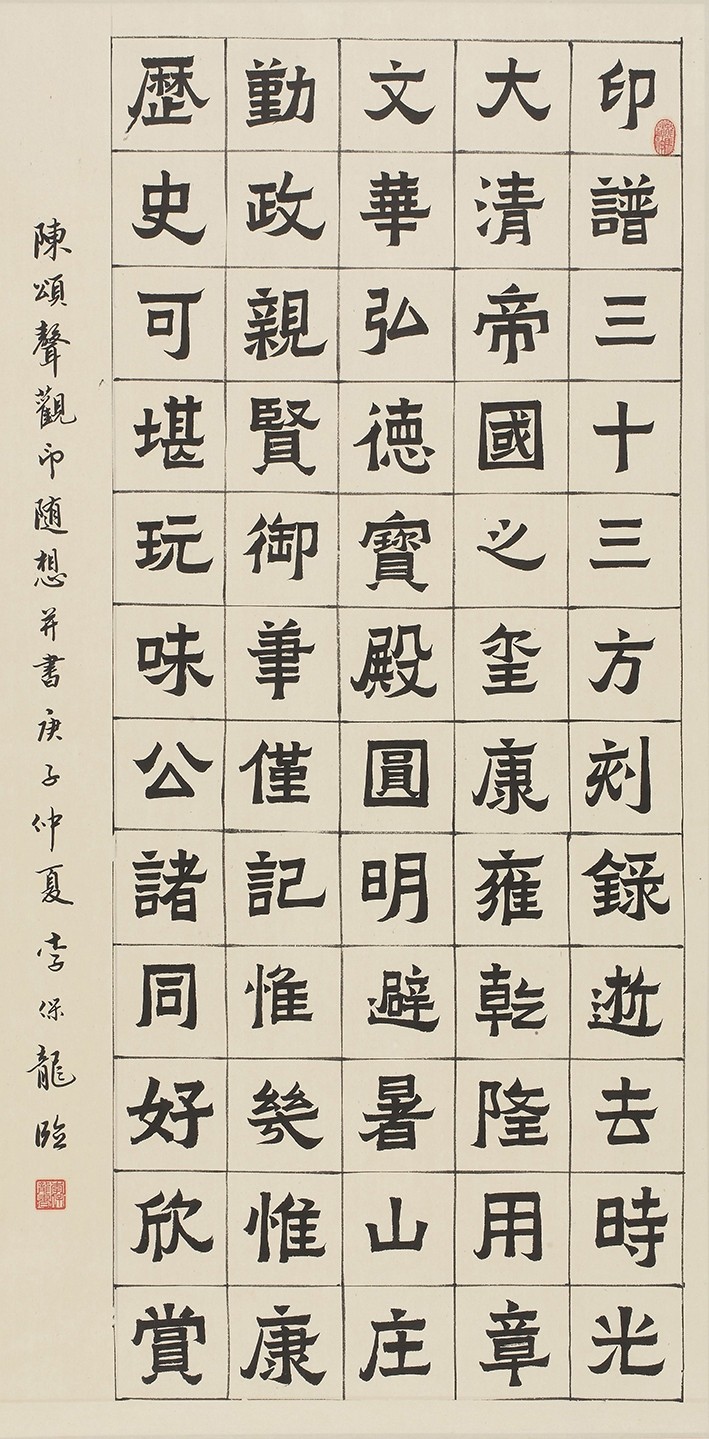 印譜三十三方刻錄逝去時光
大清帝國之玺康雍乾隆用章
文華弘德寶殿圓明避暑山庄
勤政親賢御筆僅記惟幾惟康
歷史可堪玩味公諸同好欣賞
陳頌聲觀印随想并書庚子仲夏李保龍臨